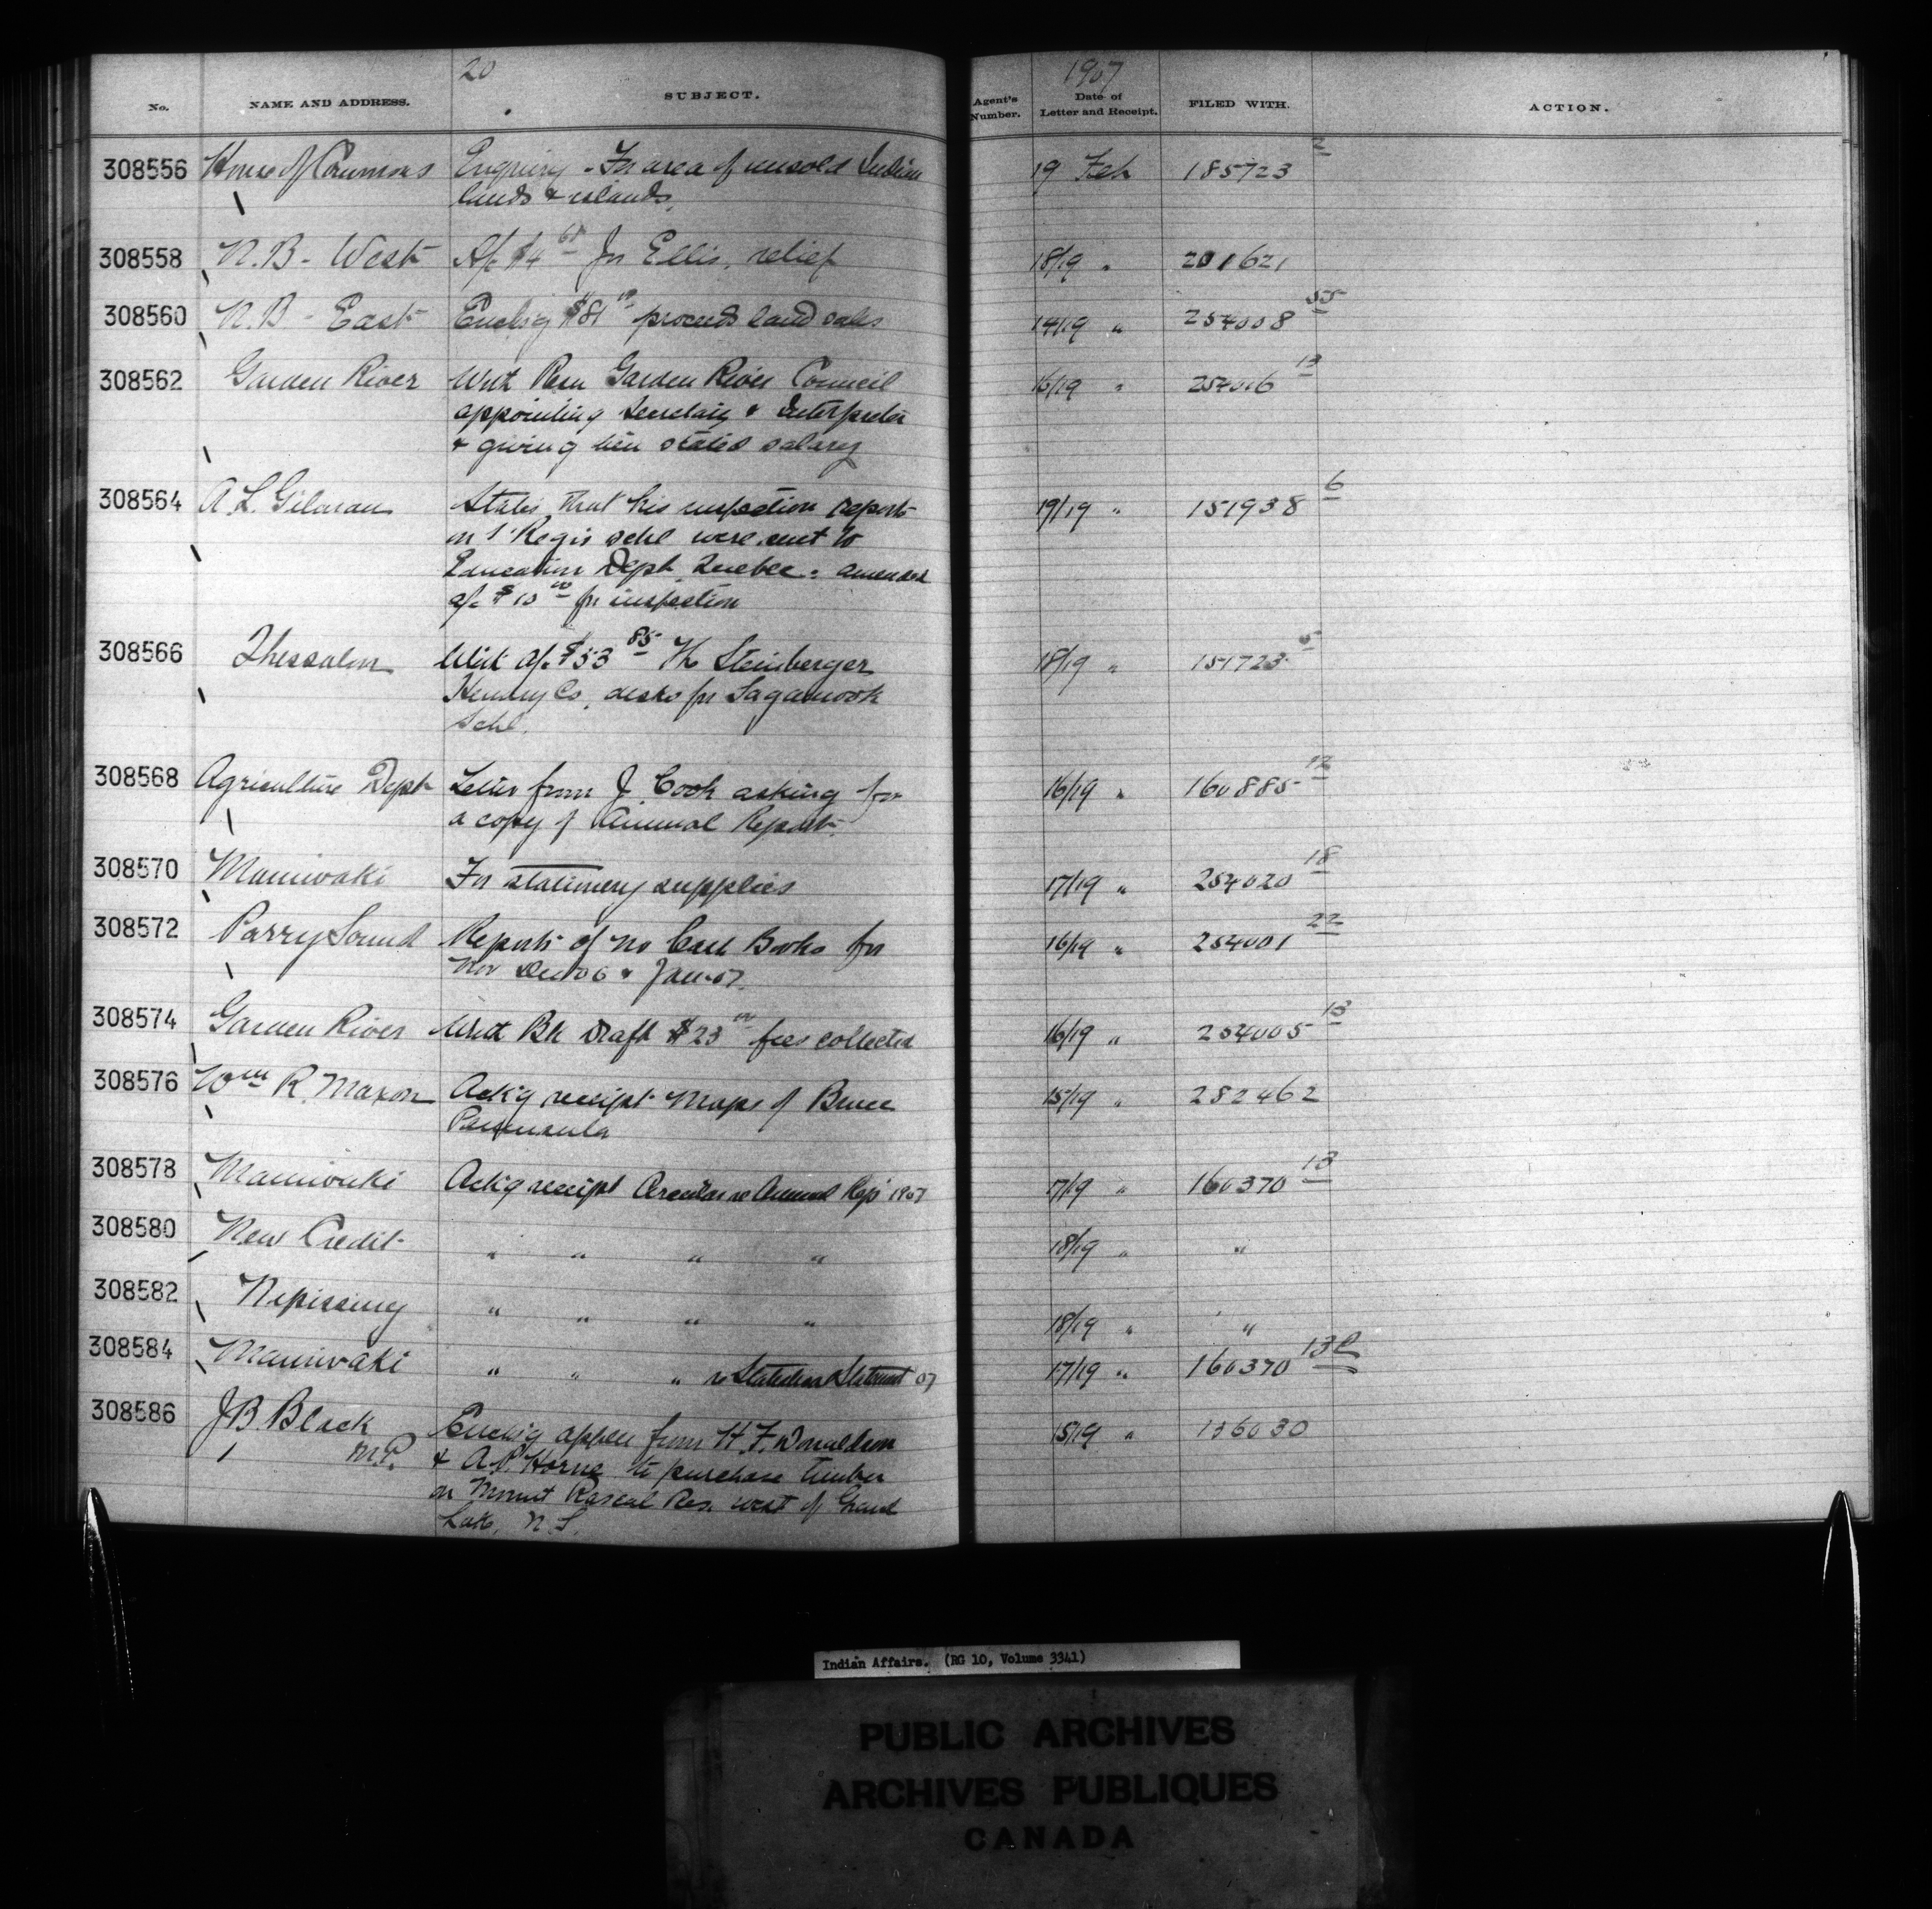 20
1907
No. NAME AND ADDRESS. SUBJECT. Agent's Number. Date of Letter and Receipt. FILED WITH. ACTION.
308556 House of Commons Enquiry - For area of unsold Indian 19 Feb 185723 2
lands & islands.
308558 N.B - West A/c $4 61 Jn Ellis, relief 18/19 " 201621
308560 N.B - East Encl'g $81 proceeds land sales 14/19 " 254008 55
308562 Garden River With Resn Garden River Council 16/19 " 254016 13
appointing Secretary & Interpreter
& giving him stated salary
308564 A. L. Gilman States that his inspection reports 19/19 " 151938 6
on St Regis schl were sent to
Education Dept Quebec: amended
a/c $10 00 for inspection
308566 Thessalon With a/c $53 85 The Steinberger 18/19 " 151723 5
Hendry Co, desks for Sagamook
Schl.
308568 Agriculture Dept Letter from J. Cook asking for 16/19 " 160885 12
a copy of Annual Report.
308570 Maniwaki For stationery supplies 17/19 " 254020 18
308572 Parry Sound Reports of no Cash Books for 16/19 " 254001 22
Nov Dec 06 & Jan-07.
308574 Garden River With Bk Draft $23 00 fees collected 16/19 " 254005 13
308576 Wm R. Maxon Ack'g receipt Maps of Bruce 15/19 " 282462
Peninsula
308578 Maniwaki Ack'g receipt Circular re Annual Rep' 1907 17/19 " 160370 13
308580 New Credit " " " " 18/19 " "
308582 Nipissing " " " " 18/19 " "
308584 Maniwaki " " " re Statistical Statement 07 17/19 " 160370 13
308586 J.B. Black Encl'g appln from H. F. Donaldson 15/19 " 136030
M.P. & A. P. Horne to purchase timber
on Mount Rascal Res. west of Grand
Lake, N.S.
Indian Affairs. (RG 10, Volume 3341)
PUBLIC ARCHIVES
ARCHIVES PUBLIQUES
CANADA